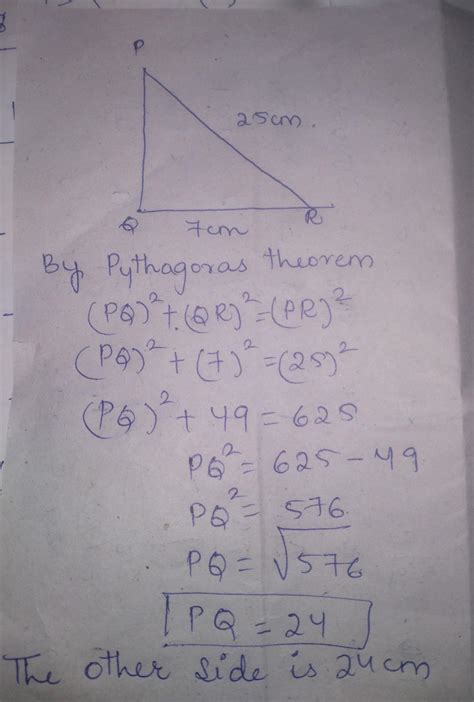 P
25cm.
Q
R
7cm
By Pythagoras theorem
(PQ)²+(QR)²=(PR)²
(PQ)²+(7)²=(25)²
(PQ)²+49=625
PQ²=625-49
PQ²=576
PQ=√576
PQ=24
The other side is 24cm